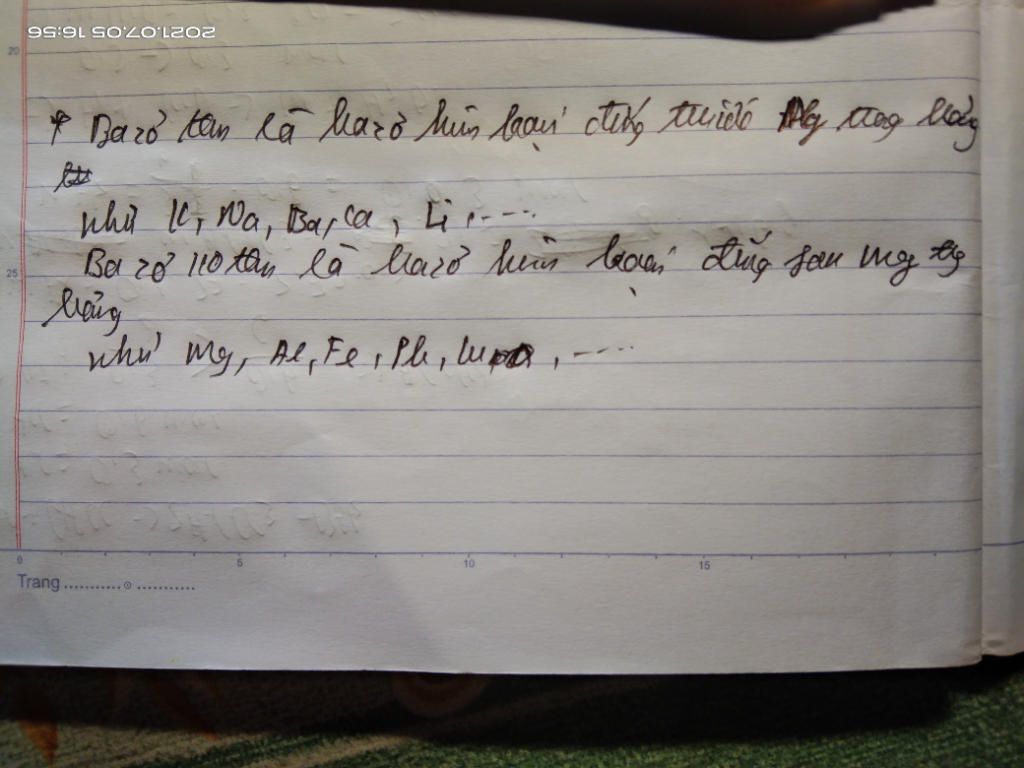 2021.07.05 16:56
20
* Bazơ tan là bazơ kim loại đứng trước Mg trong bảng
như K, Na, Ba, Ca, Li, ....
Bazơ ko tan là bazơ kim loại đứng sau Mg tg
25
bảng
như Mg, Al, Fe, Pb, Cu, ....
0 5 10 15
Trang